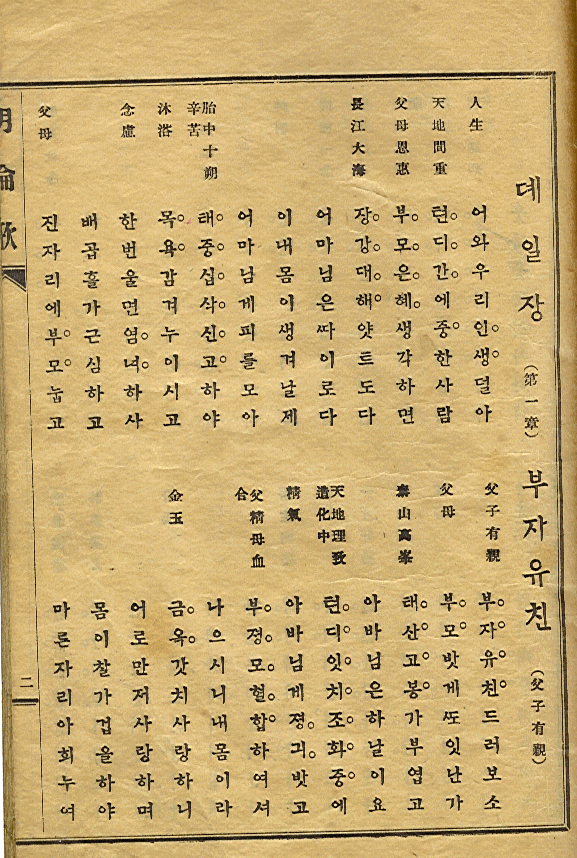 뎨일장 (第一章) 부자유친 (父子有親)
人生
어와우리인생덜아
父子有親
부자유친드러보소
天地間重
텬디간에중한사람
父母
부모밧게ᄯᅩ잇난가
父母恩惠
부모은혜생각하면
泰山高峯
태산고봉가부엽고
長江大海
장강대해얏트도다
아바님은하날이요
어마님은ᄯᅡ이로다
天地理致
造化中
텬디잇치조화중에
이내몸이생겨날제
精氣
아바님게졍긔밧고
어마님게피를모아
父精母血
合
부졍모혈합하여셔
胎中十朔
辛苦
태중십삭신고하야
나으시니내몸이라
沐浴
목욕감겨누이시고
金玉
금옥갓치사랑하니
念慮
한번울면염녀하사
어로만저사랑하며
배곱흘가근심하고
몸이찰가겁을하야
父母
진자리에부모눕고
마른자리아희누여
二